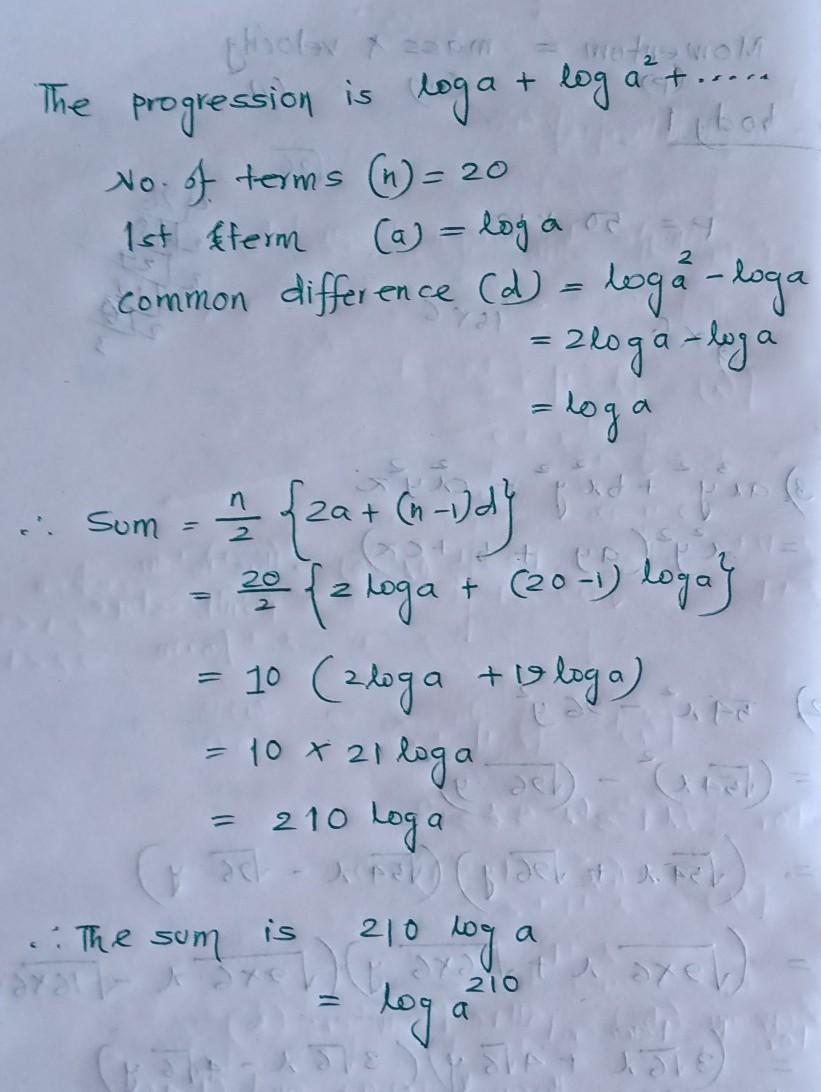 The progression is log a + log a² + .....
No. of terms (n) = 20
1st term (a) = log a
common difference (d) = log a² - log a
= 2 log a - log a
= log a
∴ Sum = n/2 {2a + (n-1)d}
= 20/2 {2 log a + (20-1) log a}
= 10 (2 log a + 19 log a)
= 10 × 21 log a
= 210 log a
∴ The sum is 210 log a
= log a²¹⁰